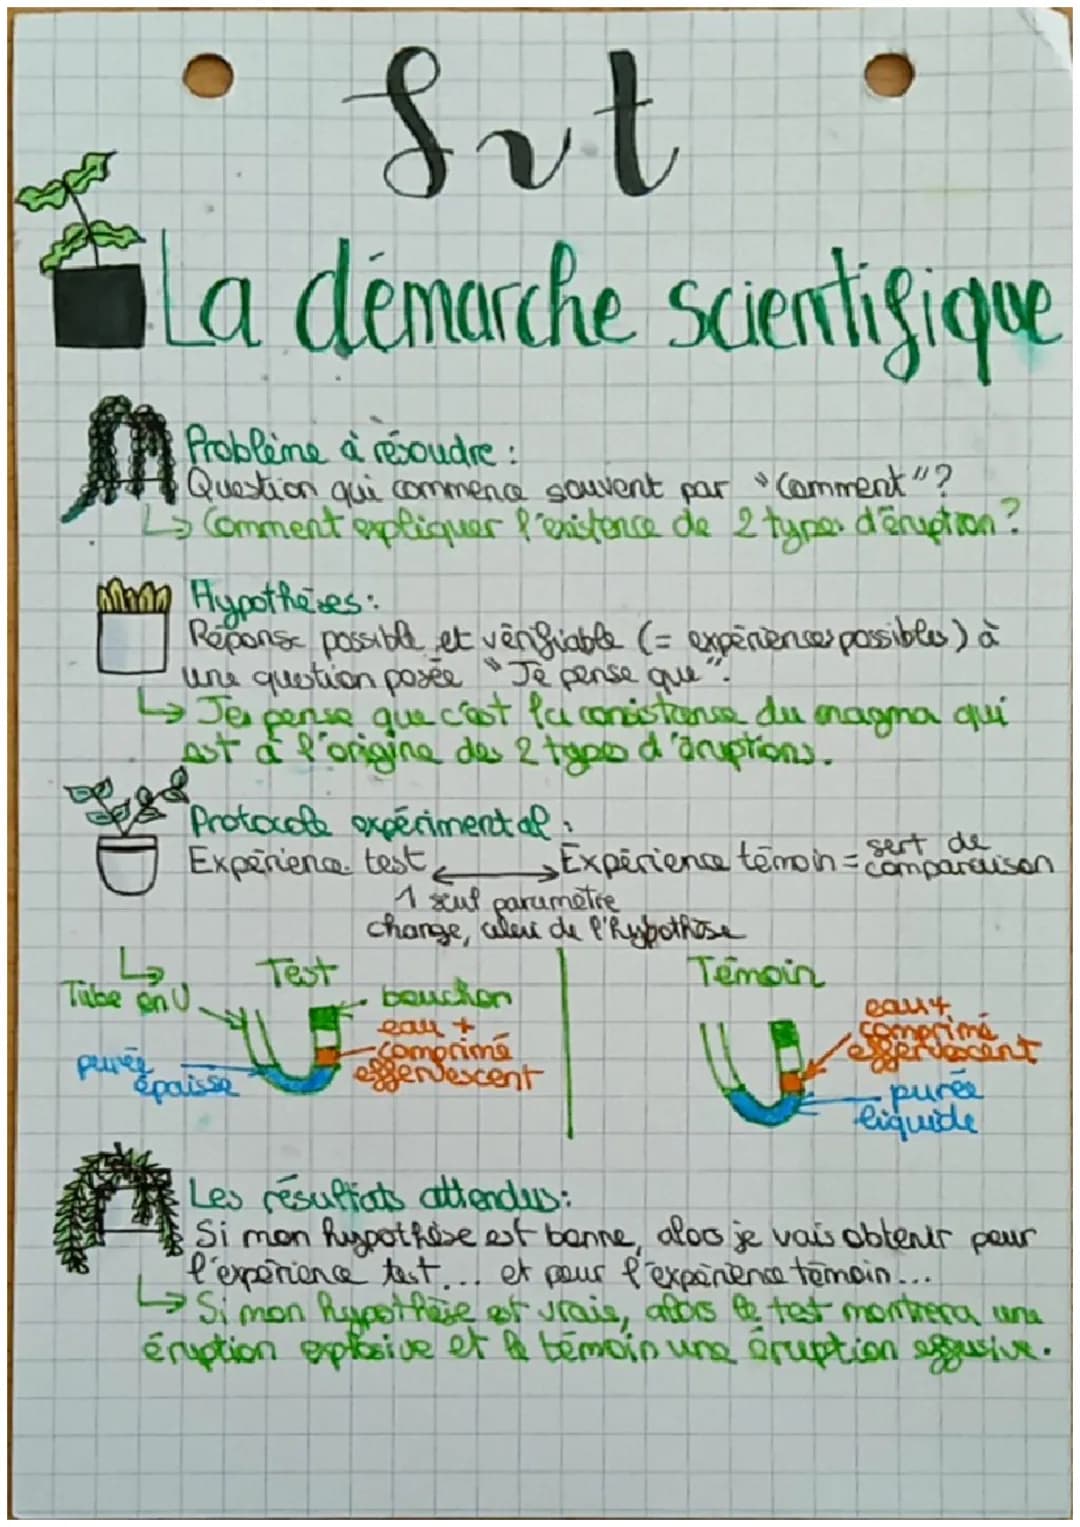 Svt
La démarche scientifique
Problème à résoudre :
Question qui commence souvent par "Comment"?
↳ Comment expliquer l'existence de 2 types d'éruption?
Hypothèses :
Réponse possible et vérifiable (= expériences possibles) à
une question posée "Je pense que".
↳ Je pense que c'est la consistance du magma qui
est à l'origine des 2 types d'éruptions.
Protocole expérimental :
Expérience test ↔ Expérience témoin = sert de
comparaison
1 seul paramètre
change, celui de l'hypothèse
↳ Test
Témoin
Tube en U
bouchon
eau +
comprimé
effervescent
purée
épaisse
eau +
comprimé
effervescent
purée
liquide
Les résultats attendus :
Si mon hypothèse est bonne, alors je vais obtenir pour
l'expérience test... et pour l'expérience témoin...
↳ Si mon hypothèse est vraie, alors le test montrera une
éruption explosive et le témoin une éruption effusive.